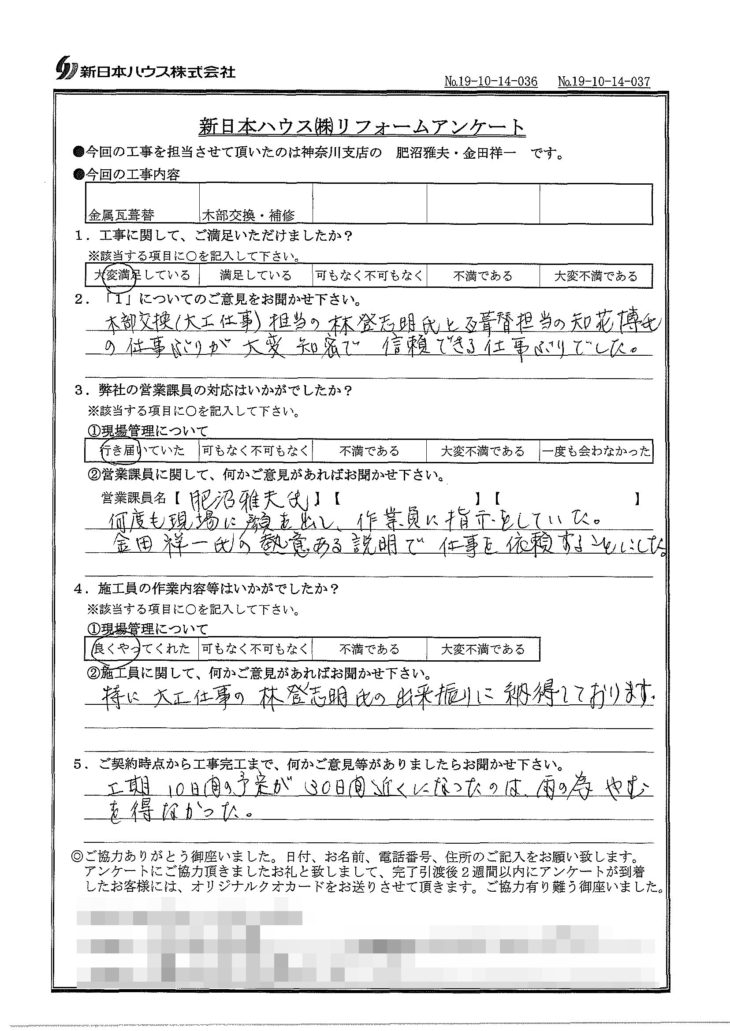 新日本ハウス株式会社
№19-10-14-036 №19-10-14-037
新日本ハウス㈱リフォームアンケート
●今回の工事を担当させて頂いたのは神奈川支店の 肥沼雅夫・金田祥一 です。
●今回の工事内容
金属瓦葺替 木部交換・補修
1．工事に関して、ご満足いただけましたか？
※該当する項目に○を記入して下さい。
大変満足している 満足している 可もなく不可もなく 不満である 大変不満である
2．「1」についてのご意見をお聞かせ下さい。
木部交換(大工仕事)担当の林登志明氏と瓦葺替担当の知花博氏
の仕事ぶりが大変 で 信頼できる仕事ぶりでした。
3．弊社の営業課員の対応はいかがでしたか？
※該当する項目に○を記入して下さい。
①現場管理について
行き届いていた 可もなく不可もなく 不満である 大変不満である 一度も会わなかった
②営業課員に関して、何かご意見があればお聞かせ下さい。
営業課員名【肥沼雅夫氏】【 】【 】
何度も現場に顔を出し、作業員に指示をしていた。
金田祥一氏の熱意ある説明で仕事を依頼することにした
4．施工員の作業内容等はいかがでしたか？
※該当する項目に○を記入して下さい。
①現場管理について
良くやってくれた 可もなく不可もなく 不満である 大変不満である
②施工員に関して、何かご意見があればお聞かせ下さい。
特に大工仕事の林登志明氏の出来振りに納得しております。
5．ご契約時点から工事完工まで、何かご意見等がありましたらお聞かせ下さい。
工期10日間の予定が30日間近くになったのは、雨の為やむ
を得なかった。
◎ご協力ありがとう御座いました。日付、お名前、電話番号、住所のご記入をお願い致します。
アンケートにご協力頂きましたお礼と致しまして、完了引渡後2週間以内にアンケートが到着
したお客様には、オリジナルクオカードをお送りさせて頂きます。ご協力有り難う御座いました。